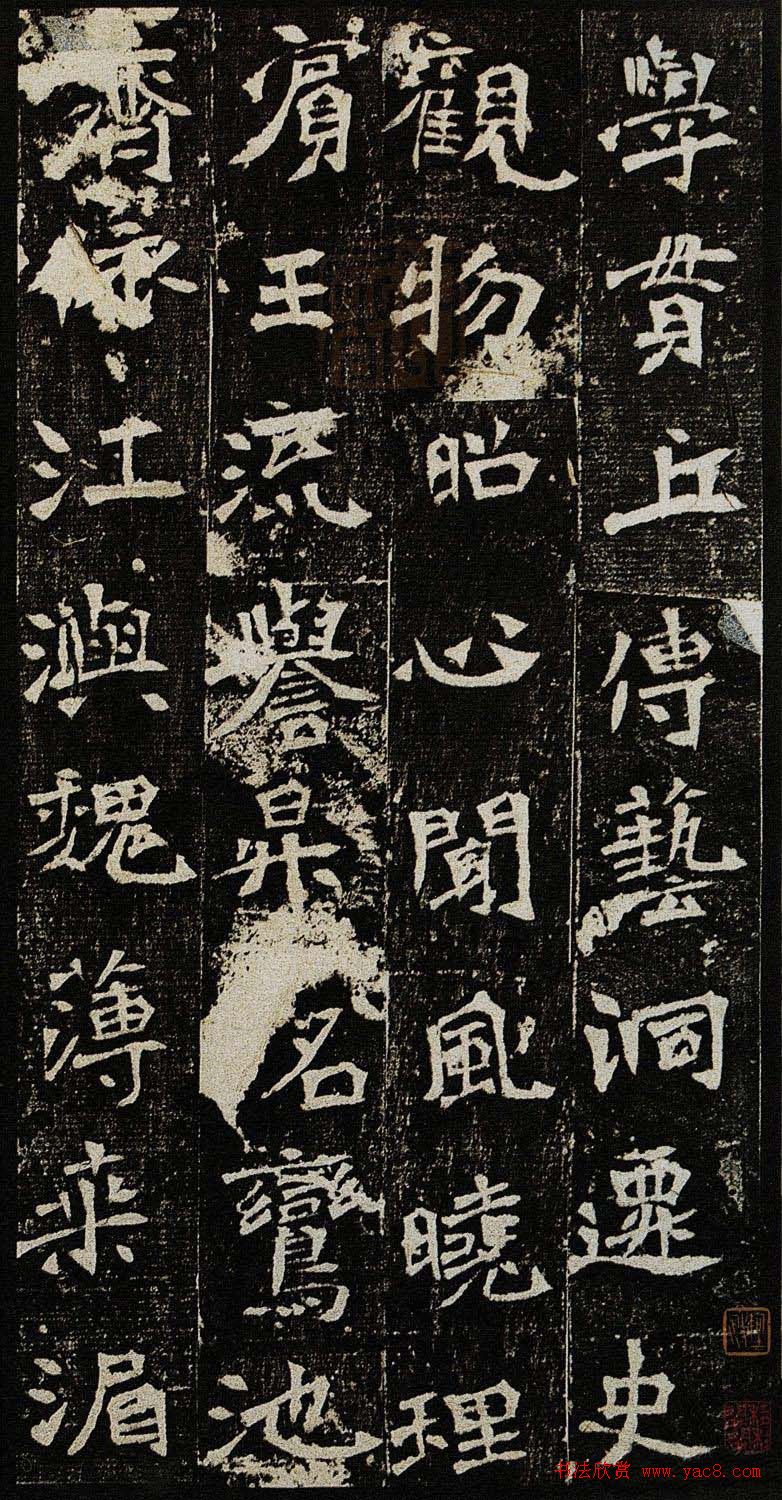 學貫丘傳藝洞遷史
觀物昭心聞風曉理
賓王流譽昇名鸞池
齊江澳魏薄桒湄
书法欣赏 www.yac8.com